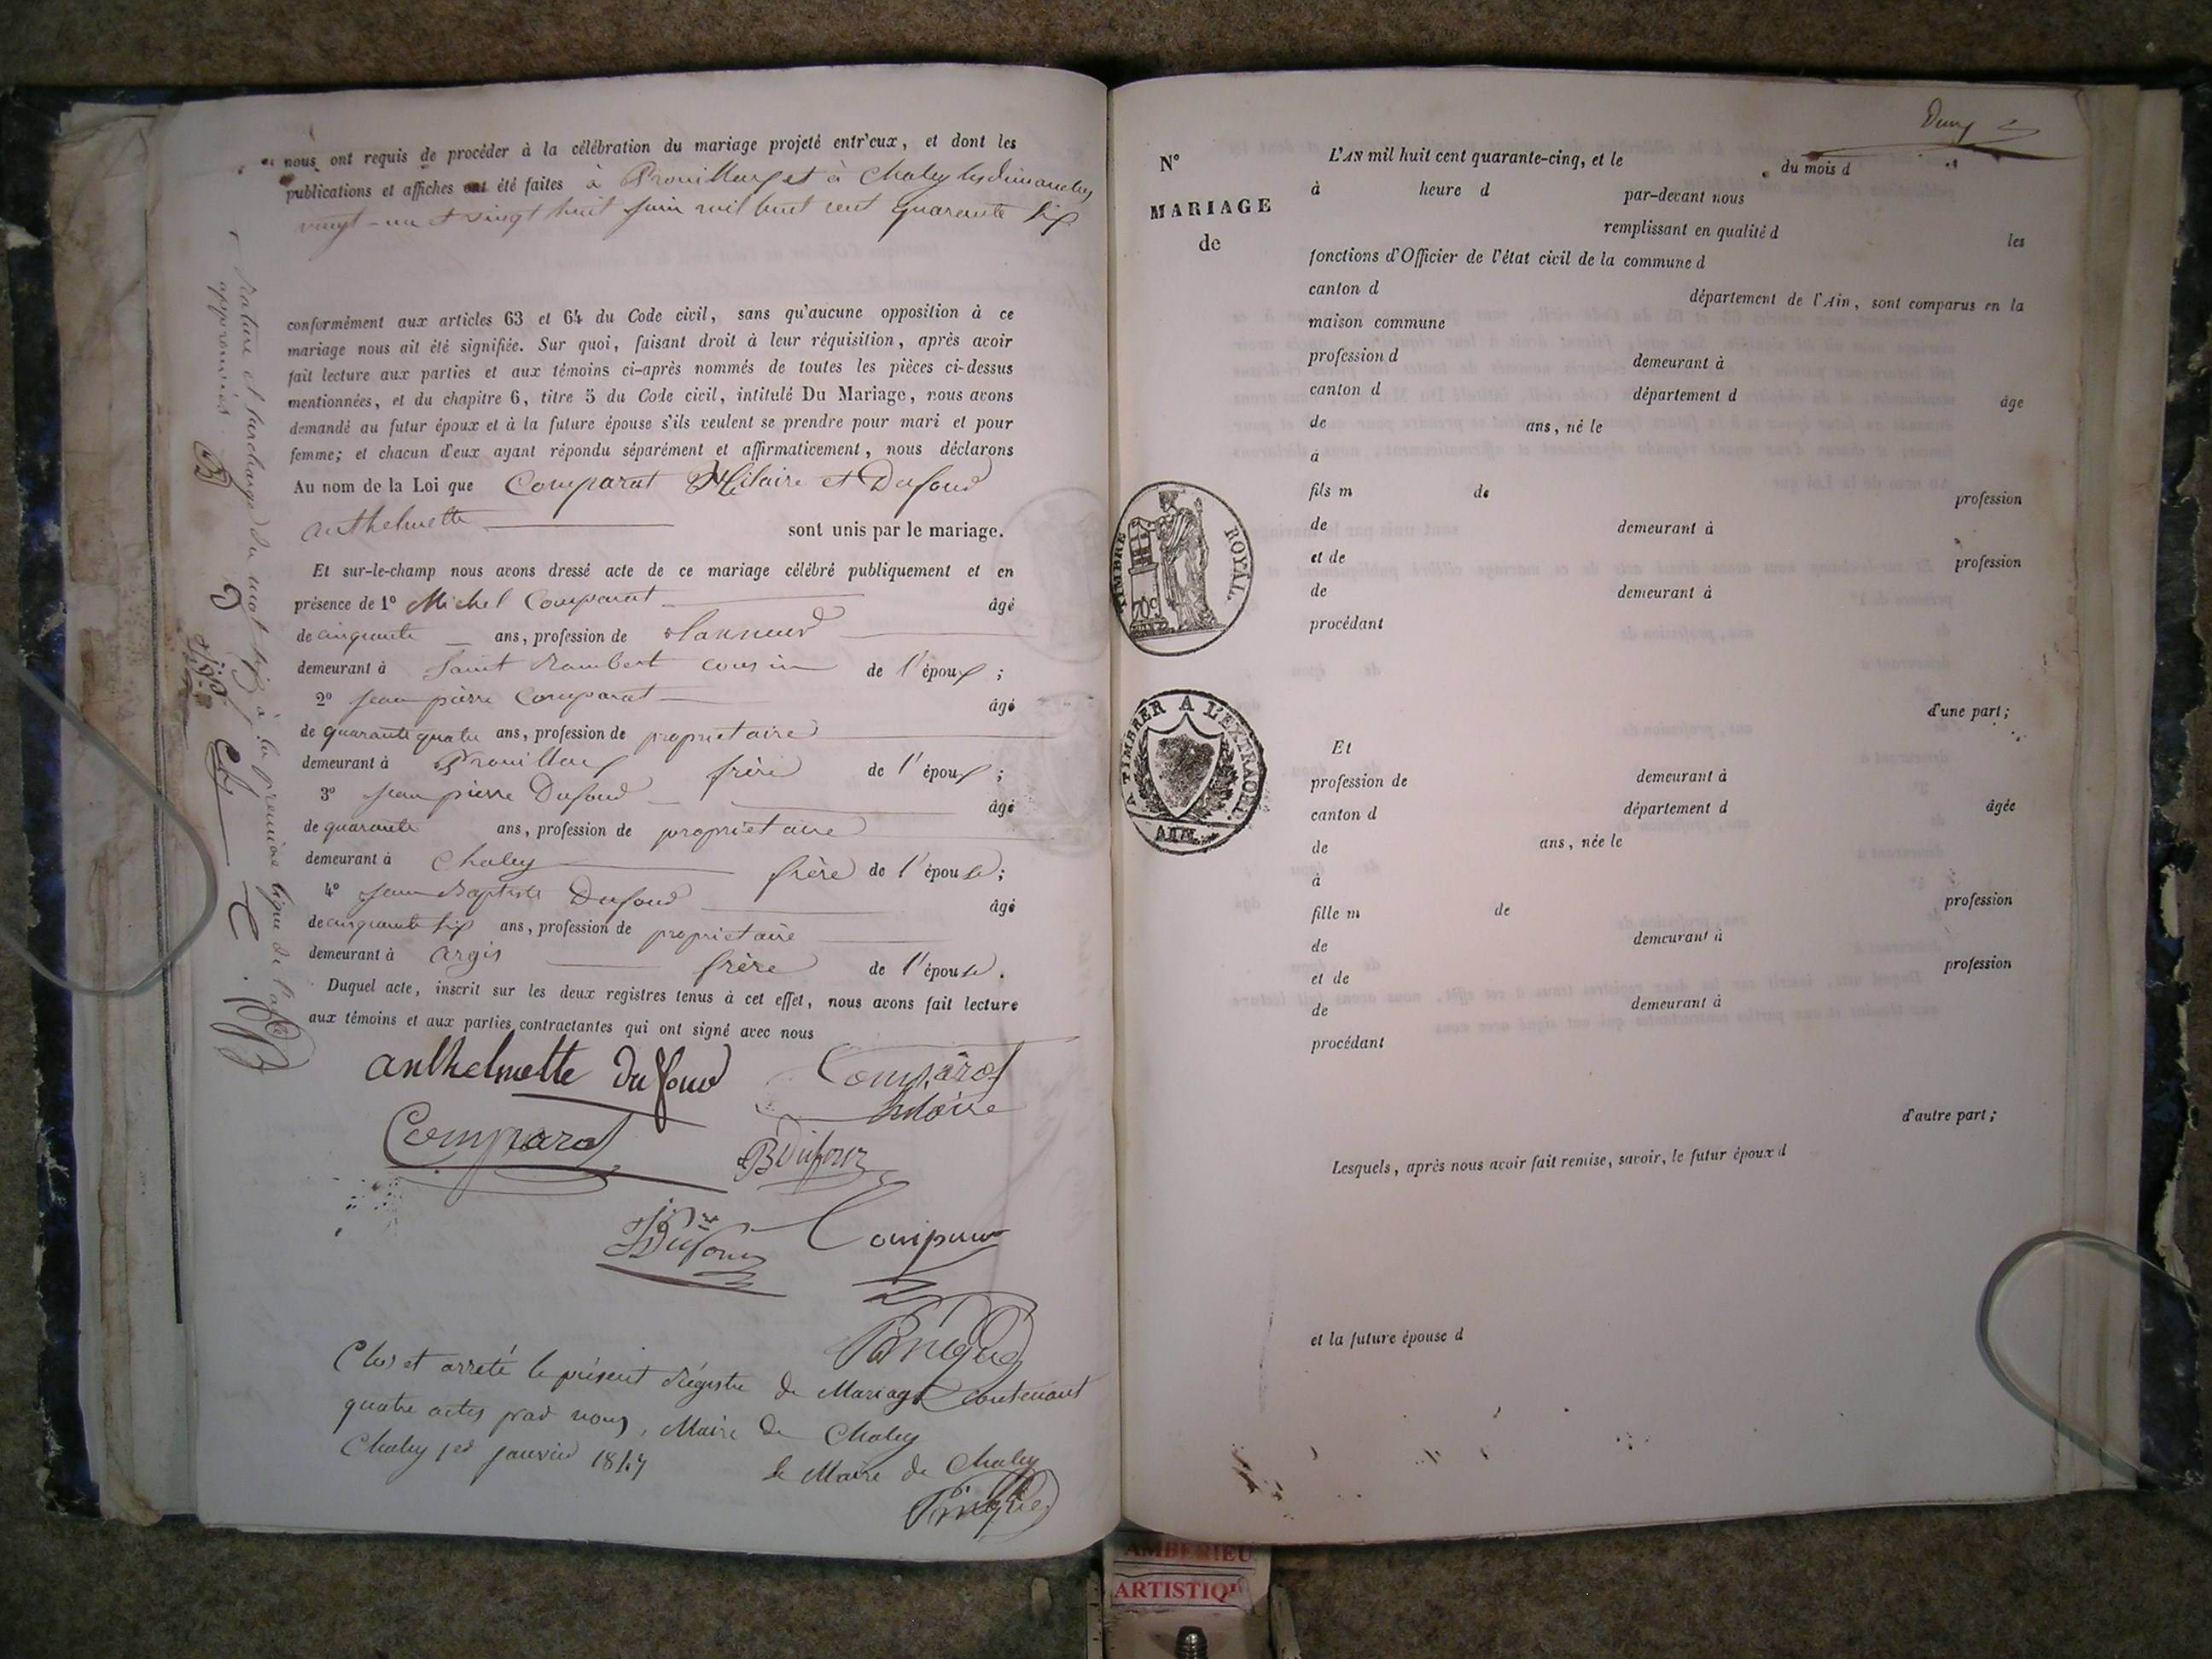 nous ont requis de procéder à la célébration du mariage projeté entr'eux, et dont les
publications et affiches ont été faites à Prouilleux et à Chaley les dimanches
vingt-un et vingt huit juin mil huit cent quarante six
conformément aux articles 63 et 64 du Code civil, sans qu'aucune opposition à ce
mariage nous ait été signifiée. Sur quoi, faisant droit à leur réquisition, après avoir
fait lecture aux parties et aux témoins ci-après nommés de toutes les pièces ci-dessus
mentionnées, et du chapitre 6, titre 5 du Code civil, intitulé Du Mariage, nous avons
demandé au futur époux et à la future épouse s'ils veulent se prendre pour mari et pour
femme; et chacun d'eux ayant répondu séparément et affirmativement, nous déclarons
Au nom de la Loi que Comparat Hilaire et Dufour
anthelmette sont unis par le mariage.
Et sur-le-champ nous avons dressé acte de ce mariage célébré publiquement et en
présence de 1° Michel Comparat âgé
de cinquante ans, profession de tanneur
demeurant à Saint Rambert cousin de l'époux;
2° jean pierre Comparat âgé
de quarante quatre ans, profession de propriétaire
demeurant à Prouilleux frère de l'époux;
3° jean pierre Dufour âgé
de quarante ans, profession de propriétaire
demeurant à Chaley frère de l'épouse;
4° jean Baptiste Dufour âgé
de cinquante six ans, profession de propriétaire
demeurant à argis frère de l'épouse.
Duquel acte, inscrit sur les deux registres tenus à cet effet, nous avons fait lecture
aux témoins et aux parties contractantes qui ont signé avec nous
anthelmette Dufour
Comparat
hilaire
Comparat
B Dufour
Dufour
Comparat
Clos et arreté le présent Régistre de Mariage contenant
quatre actes par nous, Maire de Chaley
Chaley 1er janvier 1847
Le Maire de Chaley
Rature et surcharge du mot six à la première ligne de l'acte
approuvées.
N°
MARIAGE
de
L'AN mil huit cent quarante-cinq, et le du mois d
à heure d par-devant nous
remplissant en qualité d les
fonctions d'Officier de l'état civil de la commune d
canton d département de l'Ain, sont comparus en la
maison commune
profession d demeurant à
canton d département d âge
de ans, né le
à
fils m de profession
de demeurant à
et de profession
de demeurant à
procédant
d'une part;
Et
profession de demeurant à
canton d département d âgée
de ans, née le
à
fille m de profession
de demeurant à
et de profession
de demeurant à
procédant
d'autre part;
Lesquels, après nous avoir fait remise, savoir, le futur époux d
et la future épouse d
TIMBRE ROYAL.
70c
A TIMBRER A L'EXTRAORD.
AIN.
AMBERIEU
ARTISTIQU